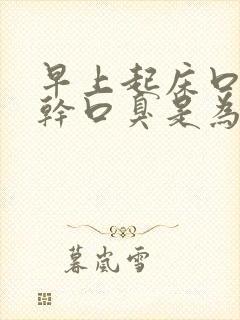 早上起床口
幹口臭是為
暮嵐雪